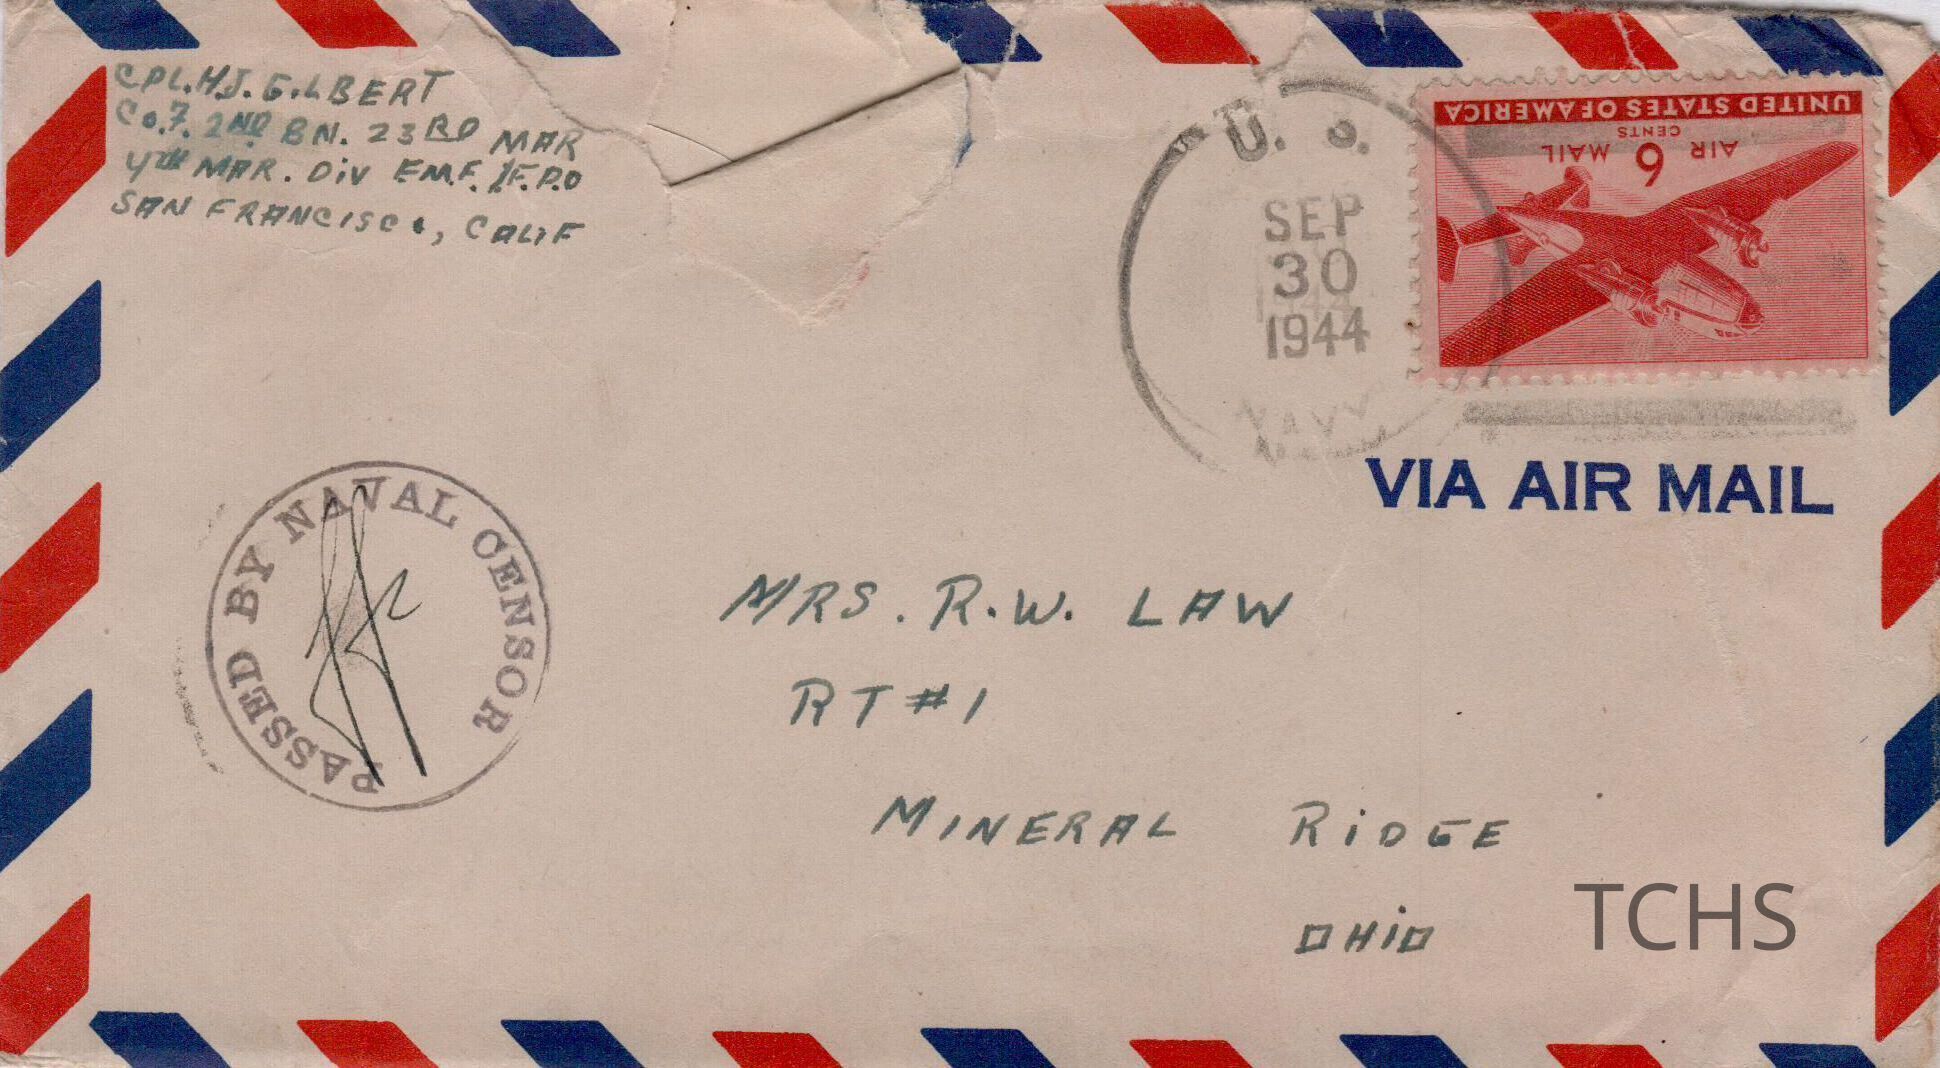 CPL. H.J. GILBERT
CO.F. 2ND BN. 23RD MAR
4TH MAR. DIV F.M.F. F.P.O
SAN FRANCISCO, CALIF
U. S.
SEP
30
1944
NAVY
UNITED STATES OF AMERICA
CENTS
AIR 6 MAIL
VIA AIR MAIL
PASSED BY NAVAL CENSOR
MRS. R.W. LAW
RT #1
MINERAL RIDGE
OHIO
TCHS